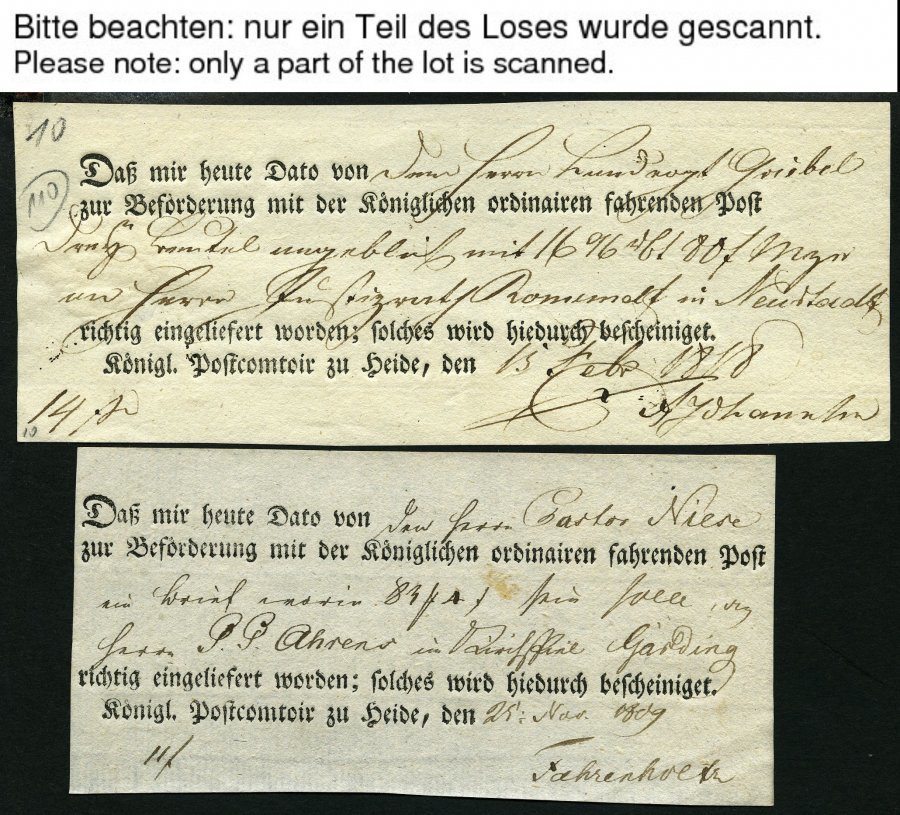 Bitte beachten: nur ein Teil des Loses wurde gescannt.
Please note: only a part of the lot is scanned.
10
110
Daß mir heute Dato von dem Herrn Landvogt Griebel
zur Beförderung mit der Königlichen ordinairen fahrenden Post
Drey Beutel angeblich mit
an Herrn Justizrath in Neustadt
richtig eingeliefert worden; solches wird hiedurch bescheiniget.
Königl. Postcomtoir zu Heide, den 15 Febr 1818
14
10
Daß mir heute Dato von den Herrn Pastor Niese
zur Beförderung mit der Königlichen ordinairen fahrenden Post
ein Brief worin sein solle, an
Herrn P. P. Ahrens in Kirchspiel Garding
richtig eingeliefert worden; solches wird hiedurch bescheiniget.
Königl. Postcomtoir zu Heide, den 25. Nov. 1809
11
Fahrenholtz